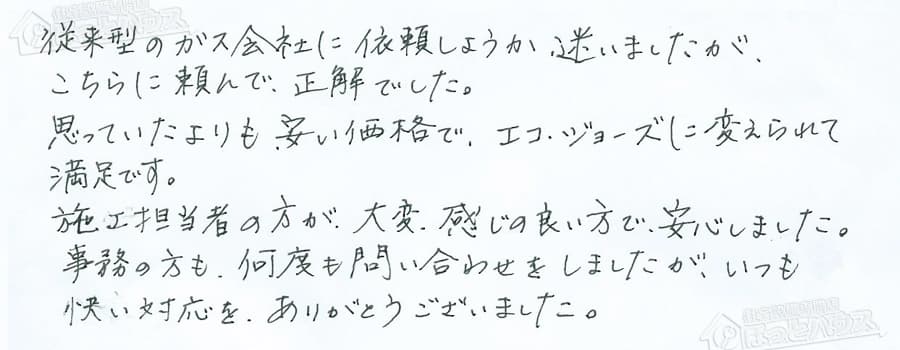 従来型のガス会社に依頼しようか迷いましたが、
こちらに頼んで、正解でした。
思っていたよりも安い価格で、エコ・ジョーズに変えられて
満足です。
施工担当者の方が、大変、感じの良い方で、安心しました。
事務の方も、何度も問い合わせをしましたが、いつも
快い対応を、ありがとうございました。